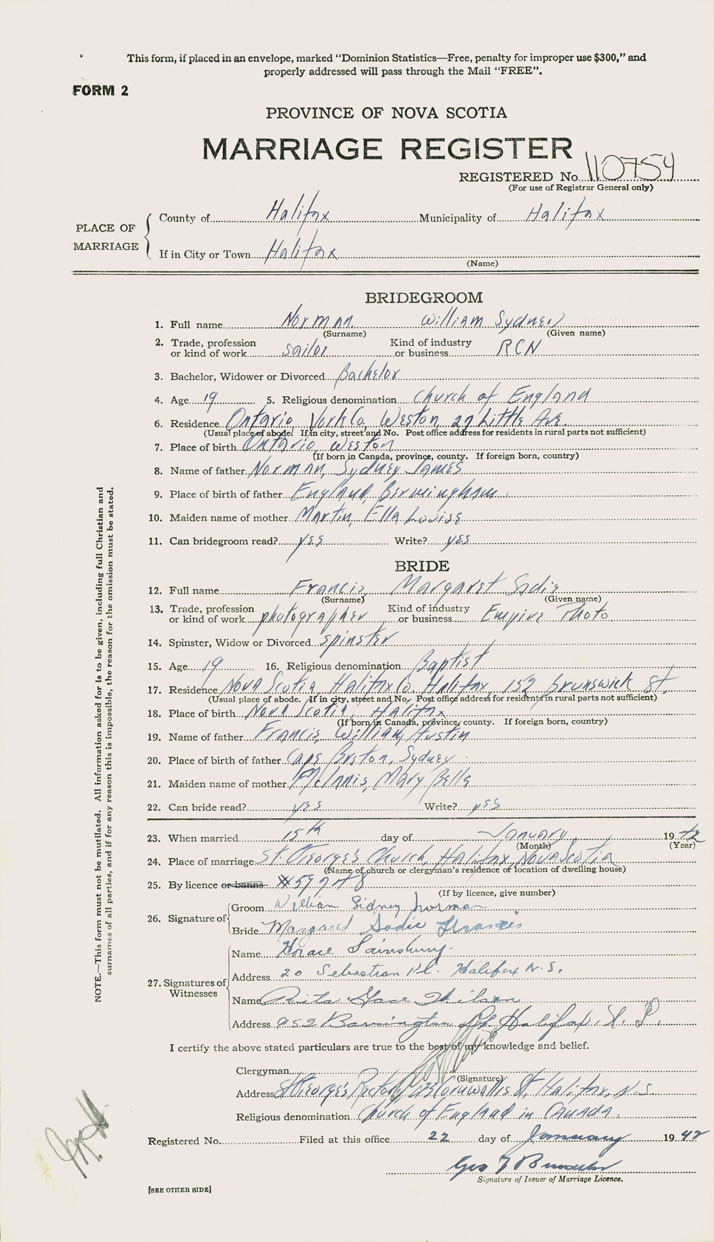 This form, if placed in an envelope, marked "Dominion Statistics—Free, penalty for improper use $300," and
properly addressed will pass through the Mail "FREE".
FORM 2
PROVINCE OF NOVA SCOTIA
MARRIAGE REGISTER
REGISTERED No. 110754
(For use of Registrar General only)
PLACE OF MARRIAGE
County of Halifax Municipality of Halifax
If in City or Town Halifax
(Name)
BRIDEGROOM
1. Full name Norman William Sydney
(Surname) (Given name)
2. Trade, profession or kind of work sailor Kind of industry or business RCN
3. Bachelor, Widower or Divorced Bachelor
4. Age 19 5. Religious denomination Church of England
6. Residence Ontario York Co, Weston, 27 Little Ave.
(Usual place of abode. If in city, street and No. Post office address for residents in rural parts not sufficient)
7. Place of birth Ontario Weston
(If born in Canada, province, county. If foreign born, country)
8. Name of father Norman, Sydney James
9. Place of birth of father England, Birmingham
10. Maiden name of mother Martin, Ella Louise
11. Can bridegroom read? yes Write? yes
BRIDE
12. Full name Francis Margaret Sadie
(Surname) (Given name)
13. Trade, profession or kind of work photographer Kind of industry or business Empire Photo
14. Spinster, Widow or Divorced spinster
15. Age 19 16. Religious denomination Baptist
17. Residence Nova Scotia Halifax Co. Halifax, 152 Brunswick St.
(Usual place of abode. If in city, street and No. Post office address for residents in rural parts not sufficient)
18. Place of birth Nova Scotia, Halifax
(If born in Canada, province, county. If foreign born, country)
19. Name of father Francis, William Austin
20. Place of birth of father Cape Breton, Sydney
21. Maiden name of mother McInnis, Mary Belle
22. Can bride read? yes Write? yes
23. When married 15th day of January 1942
(Month) (Year)
24. Place of marriage St. George's Church, Halifax, Nova Scotia
(Name of church or clergyman's residence or location of dwelling house)
25. By licence or banns
(If by licence, give number)
26. Signature of
Groom William Sidney Norman
Bride Margaret Sadie Francis
27. Signatures of Witnesses
Name Horace Sainsbury.
Address 20 Sebastian Pl. Halifax N.S.
Name Rita Grace
Address Barrington St. Halifax. N.S.
I certify the above stated particulars are true to the best of my knowledge and belief.
Clergyman
(Signature)
Address St George's Rectory Cornwallis St, Halifax, N.S.
Religious denomination Church of England in Canada.
Registered No. Filed at this office 22 day of January 1942
Geo
Signature of Issuer of Marriage Licence.
[SEE OTHER SIDE]
NOTE.—This form must not be mutilated. All information asked for is to be given, including full Christian and
surnames of all parties, and if for any reason this is impossible, the reason for the omission must be stated.